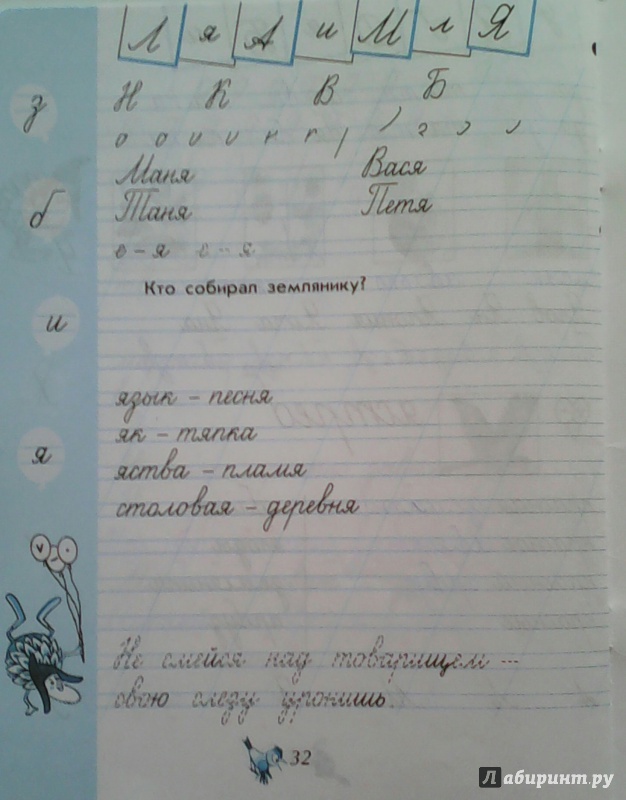 Л я А и М л Я
Н К В Б
з
Маня Вася
б Таня Петя
о – я о – я
Кто собирал землянику?
и
язык – песня
як – тяпка
я
яства – пламя
столовая – деревня
Не смейся над товарищем –
свою слезу уронишь.
32
Лабиринт.ру